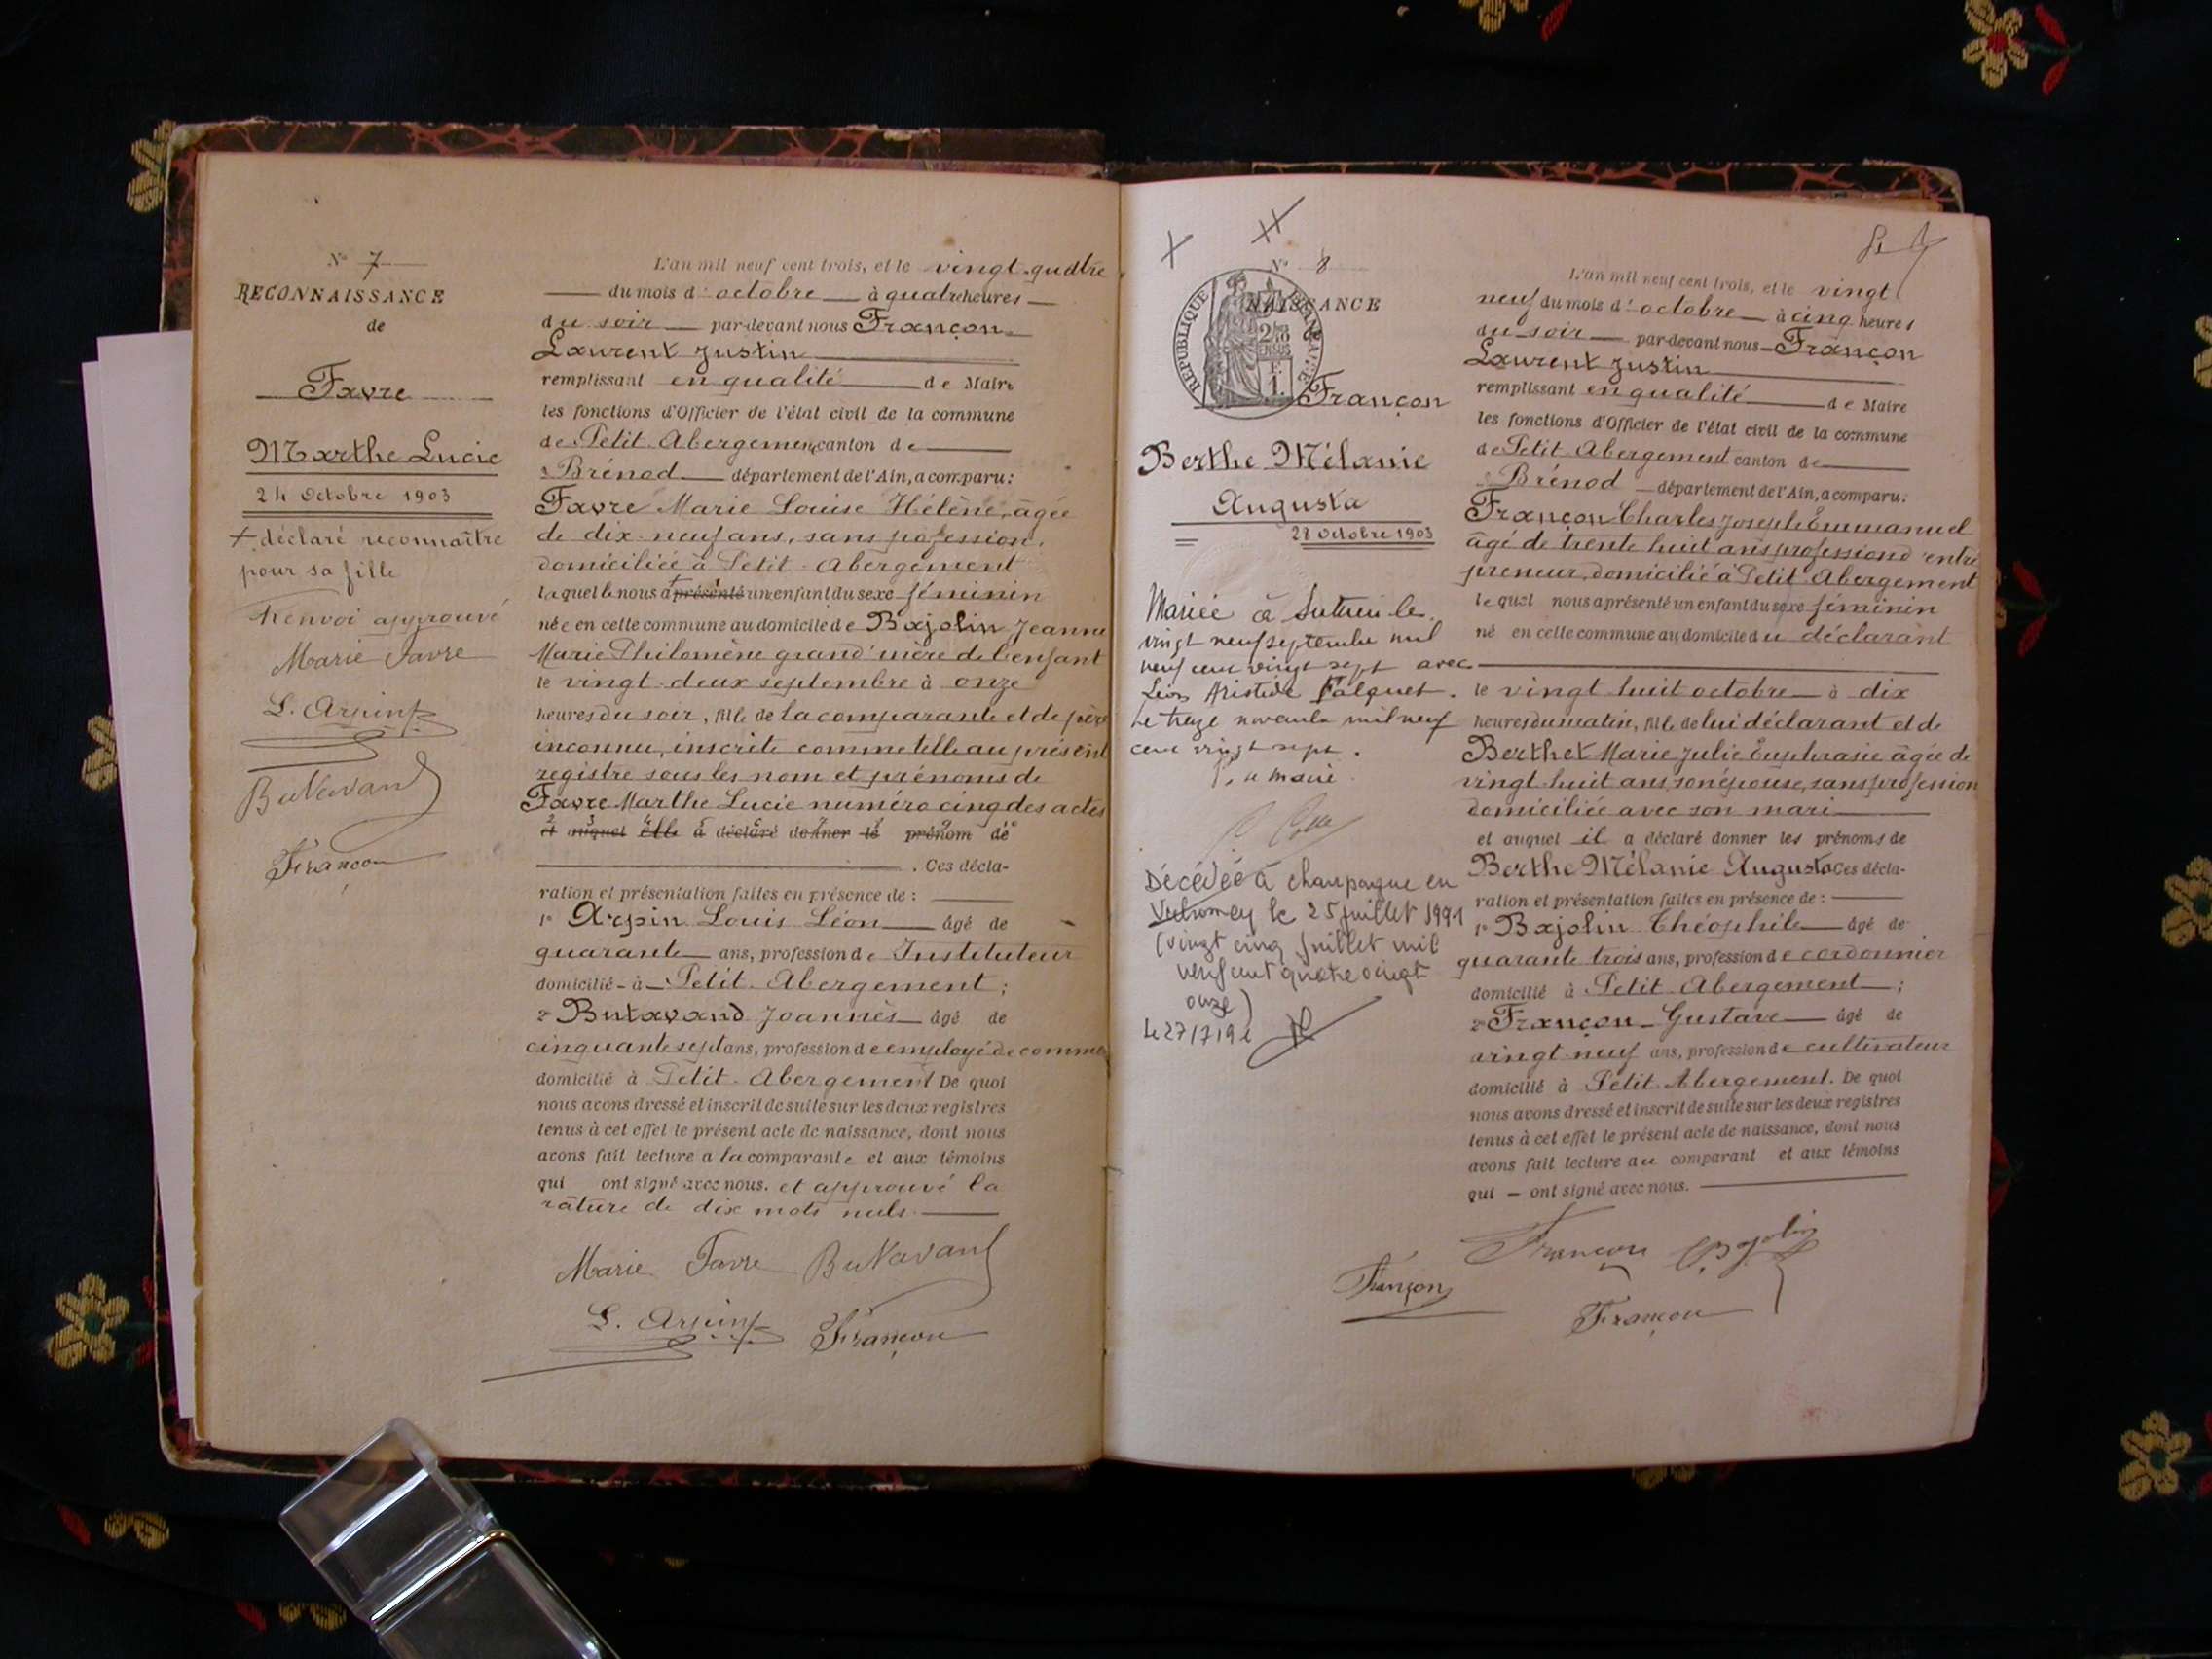 N° 7
RECONNAISSANCE
de
Favre
Marthe Lucie
24 Octobre 1903
+ déclaré reconnaître
pour sa fille
Renvoi approuvé
Marie Favre
L. Arpin
Butavand
Françon
L'an mil neuf cent trois, et le vingt-quatre
du mois d'octobre à quatre heures
du soir par-devant nous Françon
Laurent Justin
remplissant en qualité de Maire
les fonctions d'Officier de l'état civil de la commune
de Petit-Abergement canton de
Brénod département de l'Ain, a comparu:
Favre Marie Louise Hélène, âgée
de dix-neuf ans, sans profession,
domiciliée à Petit-Abergement
laquelle nous a + présenté un enfant du sexe féminin
née en cette commune au domicile de Bajolin Jeanne
Marie Philomène grand'mère de l'enfant
le vingt-deux septembre à onze
heures du soir, fille de la comparante et de père
inconnu, inscrite comme telle au présent
registre sous les nom et prénoms de
Favre Marthe Lucie numéro cinq des actes
et auquel elle a déclaré donner le prénom de
. Ces décla-
ration et présentation faites en présence de :
1° Arpin Louis Léon âgé de
quarante ans, profession de Instituteur
domicilié à Petit-Abergement ;
2° Butavand Joannès âgé de
cinquante sept ans, profession de employé de comme
domicilié à Petit-Abergement De quoi
nous avons dressé et inscrit de suite sur les deux registres
tenus à cet effet le présent acte de naissance, dont nous
avons fait lecture à la comparante et aux témoins
qui ont signé avec nous. et approuvé la
rature de dix mots nuls.
Marie Favre Butavand
L. Arpin Françon
N° 8
NAISSANCE
REPUBLIQUE FRANÇAISE
Françon
Berthe Mélanie
Augusta
28 Octobre 1903
Mariée à Sutrieu le
vingt neuf septembre mil
neuf cent vingt sept avec
Léon Aristide Falquet.
Le treize novembre mil neuf
cent vingt sept.
Le maire
Décédée à Champagne en
Valromey le 25 juillet 1991
(vingt cinq juillet mil
neuf cent quatre vingt
onze)
L'an mil neuf cent trois, et le vingt
neuf du mois d'octobre à cinq heures
du soir par-devant nous Françon
Laurent Justin
remplissant en qualité de Maire
les fonctions d'Officier de l'état civil de la commune
de Petit-Abergement canton de
Brénod département de l'Ain, a comparu:
Françon Charles Joseph Emmanuel
âgé de trente huit ans profession d'entre
preneur, domicilié à Petit-Abergement
lequel nous a présenté un enfant du sexe féminin
né en cette commune au domicile du déclarant
le vingt huit octobre à dix
heures du matin, fille de lui déclarant et de
Berthet Marie Julie Euphrasie âgée de
vingt-huit ans, son épouse, sans profession
domiciliée avec son mari
et auquel il a déclaré donner les prénoms de
Berthe Mélanie Augusta Ces décla-
ration et présentation faites en présence de :
1° Bajolin Théophile âgé de
quarante trois ans, profession de cordonnier
domicilié à Petit-Abergement ;
2° Françon Gustave âgé de
vingt-neuf ans, profession de cultivateur
domicilié à Petit-Abergement. De quoi
nous avons dressé et inscrit de suite sur les deux registres
tenus à cet effet le présent acte de naissance, dont nous
avons fait lecture au comparant et aux témoins
qui ont signé avec nous.
Françon Bajolin
Françon
Françon